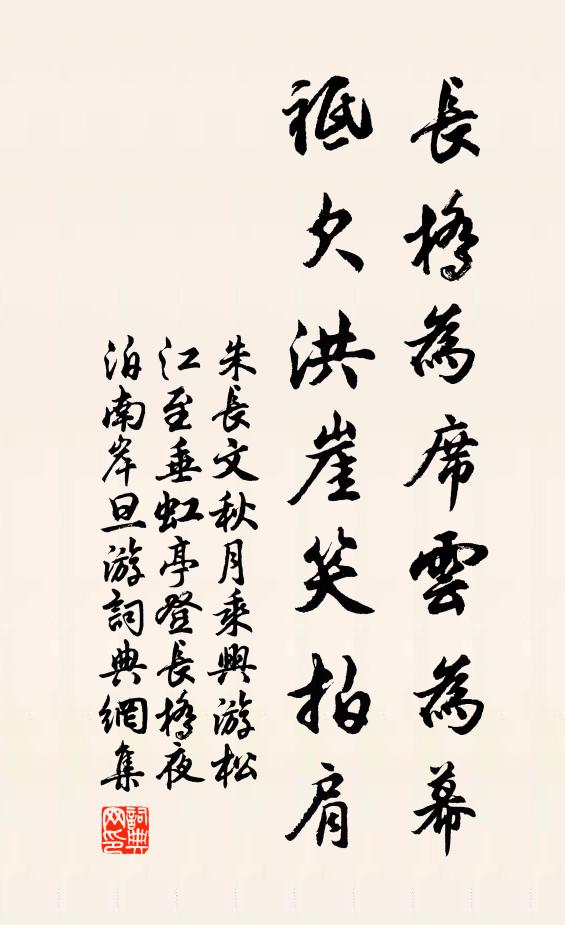 長橋為席雲為幕
祗欠洪崖笑拍肩
朱長文秋月乘興游松
江至垂虹亭登長橋夜
泊南岸旦游詞典網集
詞典
网印